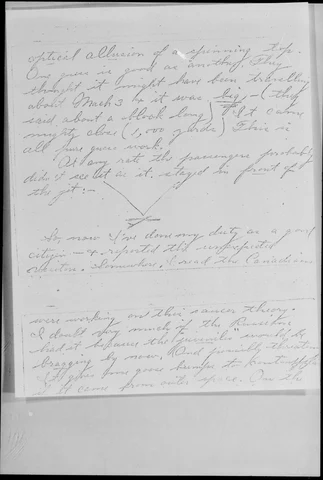 optical allusion of a spinning top.
One guess is good as another. They
thought it might have been travelling
about Mach 3 & it was big — (they
said about a block long) It came
mighty close (1,000 yards) This is
all pure guess work.
At any rate the passengers probably
didn't see it as it stayed in front of
the jet: —
So, now I've done my duty as a good
citizen — & reported the unexpected
Somewhere, I read the Canadians
were working on this saucer theory.
I doubt very much if the Russians
had it because they would be
bragging by now. And possibly threatening
It gives one goose bumps to
if it came from outer space. On the